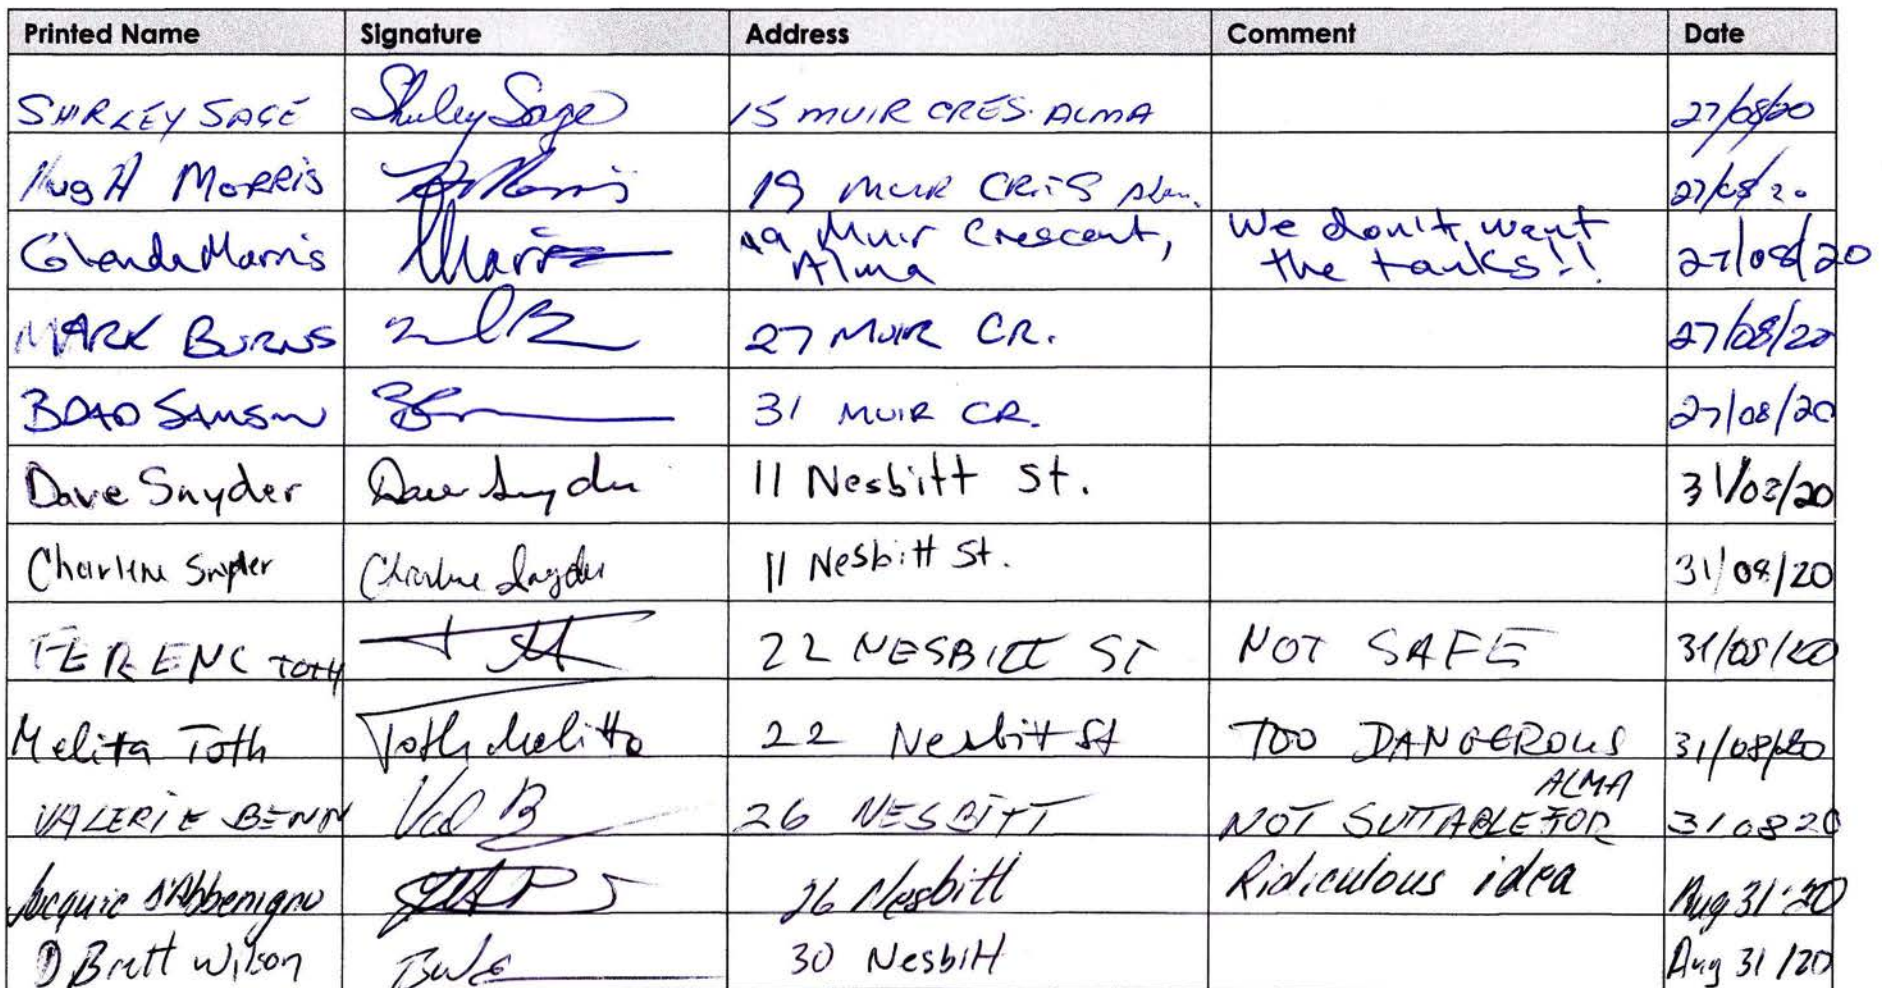 Printed Name Signature Address Comment Date
SHIRLEY SAGE Shirley Sage 15 MUIR CRES. ALMA 27/08/20
Hugh MORRIS 19 MUIR CRES Alma. 27/08/20
Glenda Morris Morris 19 Muir Crescent, Alma We don't want the tanks!! 27/08/20
MARK BURNS 27 MUIR CR. 27/08/20
BRAD SAMSON 31 MUIR CR. 27/08/20
Dave Snyder Dave Snyder 11 Nesbitt St. 31/08/20
Charlene Snyder Charlene Snyder 11 Nesbitt St. 31/08/20
FERENC TOTH 22 NESBITT ST NOT SAFE 31/08/20
Melita Toth Toth Melitta 22 Nesbitt St TOO DANGEROUS 31/08/20
VALERIE BENN Val B 26 NESBITT NOT SUITABLE FOR ALMA 31 08 20
Jacquie D'Abbenigno 26 Nesbitt Ridiculous idea Aug 31 '20
D Brett Wilson 30 Nesbitt Aug 31 /20